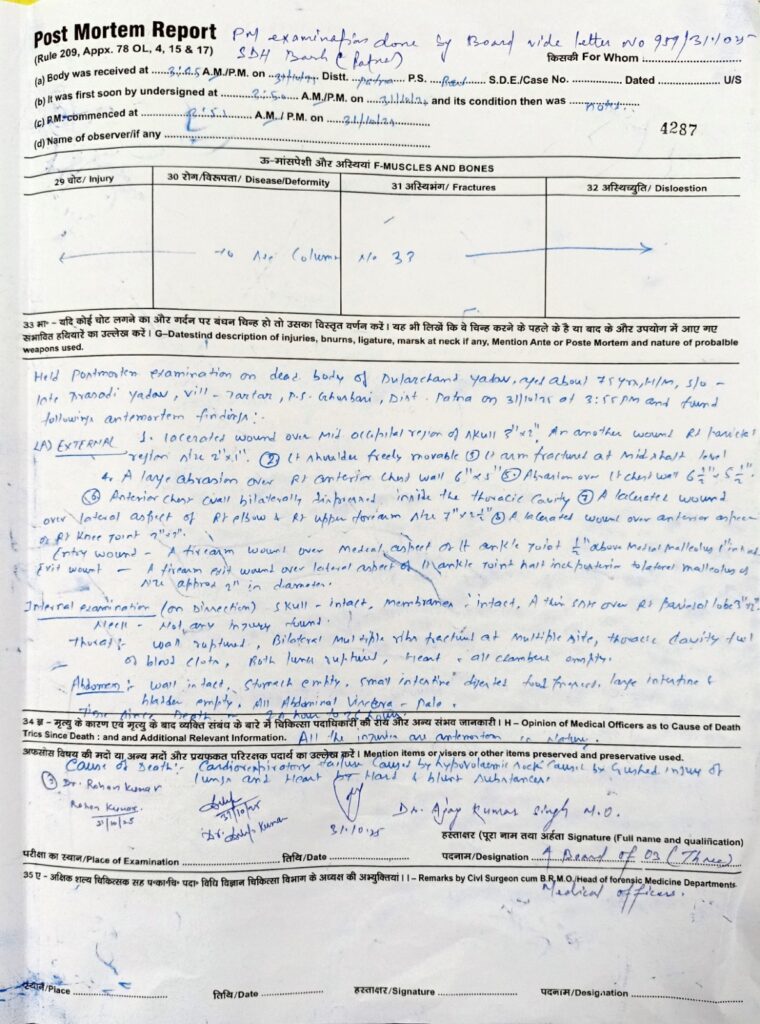 Post Mortem Report PM examination done by Board vide letter no 959/31.10.25
(Rule 209, Appx. 78 OL, 4, 15 & 17) SDH Barh (Patna)
किसकी For Whom
(a) Body was received at A.M./P.M. on Distt. Patna P.S. S.D.E/Case No. Dated U/S
(b) It was first soon by undersigned at A.M./P.M. on and its condition then was
(c) P.M. commenced at A.M. / P.M. on
(d) Name of observer/if any
4287
ऊ-मांसपेशी और अस्थियां F-MUSCLES AND BONES
29 चोट/ Injury 30 रोग/विरूपता/ Disease/Deformity 31 अस्थिभंग/ Fractures 32 अस्थिच्युति/ Disloestion
Column No 33
33 भा॰ – यदि कोई चोट लगने का और गर्दन पर बंधन चिन्ह हो तो उसका विस्तृत वर्णन करें। यह भी लिखें कि वे चिन्ह करने के पहले के है या बाद के और उपयोग में आए गए
सभावित हथियारें का उल्लेख करें। G–Datestind description of injuries, bnurns, ligature, marsk at neck if any, Mention Ante or Poste Mortem and nature of probalble
weapons used.
Held Postmortem examination on dead body of Dularchand Yadav, aged about 75 yrs, H/M, S/o -
late Yadav, Vill - Tartar, P.S. Ghosbari, Dist. Patna on 31/10/25 at 3:55 PM and found
followings antemortem findings:
(A) EXTERNAL 1. lacerated wound over Mid occipital region of skull 3"x2", An another wound Rt parietal
region size 2"x1". ② Lt shoulder freely movable ③ Lt arm fractured at Midshaft level
4. A large abrasion over Rt anterior chest wall 6"x5" ⑤. Abrasion over Lt chest wall
⑥ Anterior chest wall bilaterally inside the thoracic cavity ⑦ A lacerated wound
over lateral aspect of Rt elbow & Rt upper forearm size ⑧ A lacerated wound over anterior aspect
of Rt Knee Joint
Entry wound - A firearm wound over Medial aspect of Lt ankle Joint above Medial malleolus
Exit wound - A firearm exit wound over lateral aspect of Lt ankle Joint half inch posterior to lateral malleolus of
size approx in diameter.
Internal examination (on Dissection) Skull - intact, Membranes : intact, over Rt parietal lobe 3"x2"
Neck - Not any injury found.
Thorax:- wall ruptured, Bilateral Multiple ribs fractured at multiple site, thoracic cavity full
of blood clots, Both lungs ruptured, Heart - all chambers empty.
Abdomen:- wall intact, Stomach empty, small intestine digested food present, large intestine &
bladder empty, All Abdominal Viscera - Pale.
Time Since Death -
34 ज्ञ – मृत्यु के कारण एवं मृत्यु के बाद व्यक्ति संबंध के बारे में चिकित्सा पदाधिकारी की राय और अन्य संभव जानकारी। H – Opinion of Medical Officers as to Cause of Death
Trics Since Death : and and Additional Relevant Information. All the injuries are antemortem in nature.
अफसोस विषय की मदों या अन्य मदों और प्रयफकत परिरक्षक पदार्थ का उल्लेख करें। Mention items or visers or other items preserved and preservative used.
Cause of Death:- Cardiorespiratory failure caused by hypovolemic shock caused by Crushed injury of
lungs and Heart by Hard & blunt substances.
③ Dr. Rohan Kumar
Rohan Kumar
31/10/25
31/10/25
Dr. Kumar
31.10.25
Dr. Ajay Kumar Singh M.O.
हस्ताक्षर (पूरा नाम तथा अर्हता Signature (Full name and qualification)
परीक्षा का स्थान/Place of Examination तिथि/Date पदनाम/Designation A Board of 03 (Three)
Medical officers.
35 ए - अक्षिक शल्य चिकित्सक सह प॰का॰चि॰ पदा॰ विधि विज्ञान चिकित्सा विभाग के अध्यक्ष की अभ्युक्तियां।। I – Remarks by Civl Surgeon cum B.R,M.O./Head of forensic Medicine Departments
स्थान/Place तिथि/Date हस्ताक्षर/Signature पदनाम/Designation